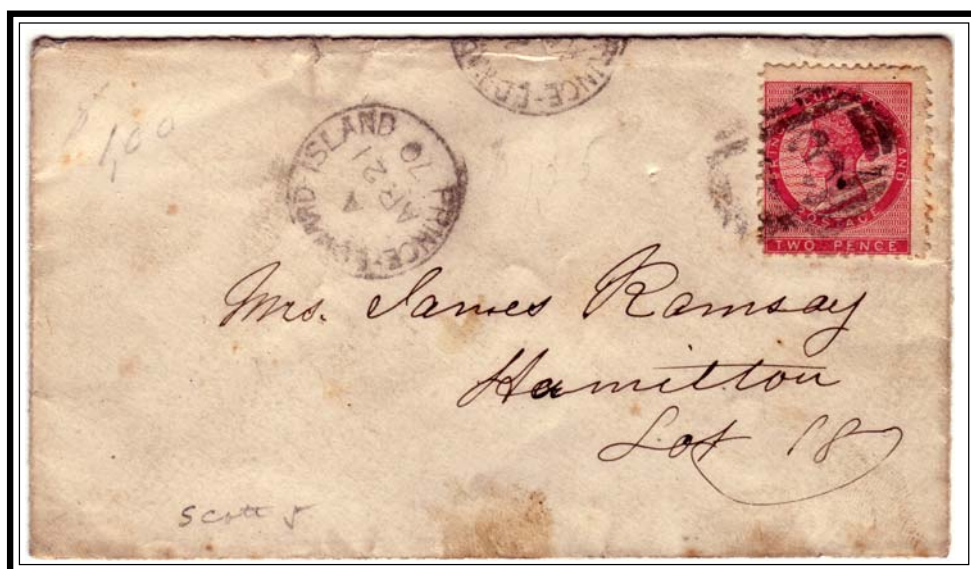 PRINCE-EDWARD
PRINCE-EDWARD ISLAND
A
AP 21
70
AND
POSTAGE
TWO PENCE
Mrs. James Ramsay
Hamilton
Lot 18
Scott 5